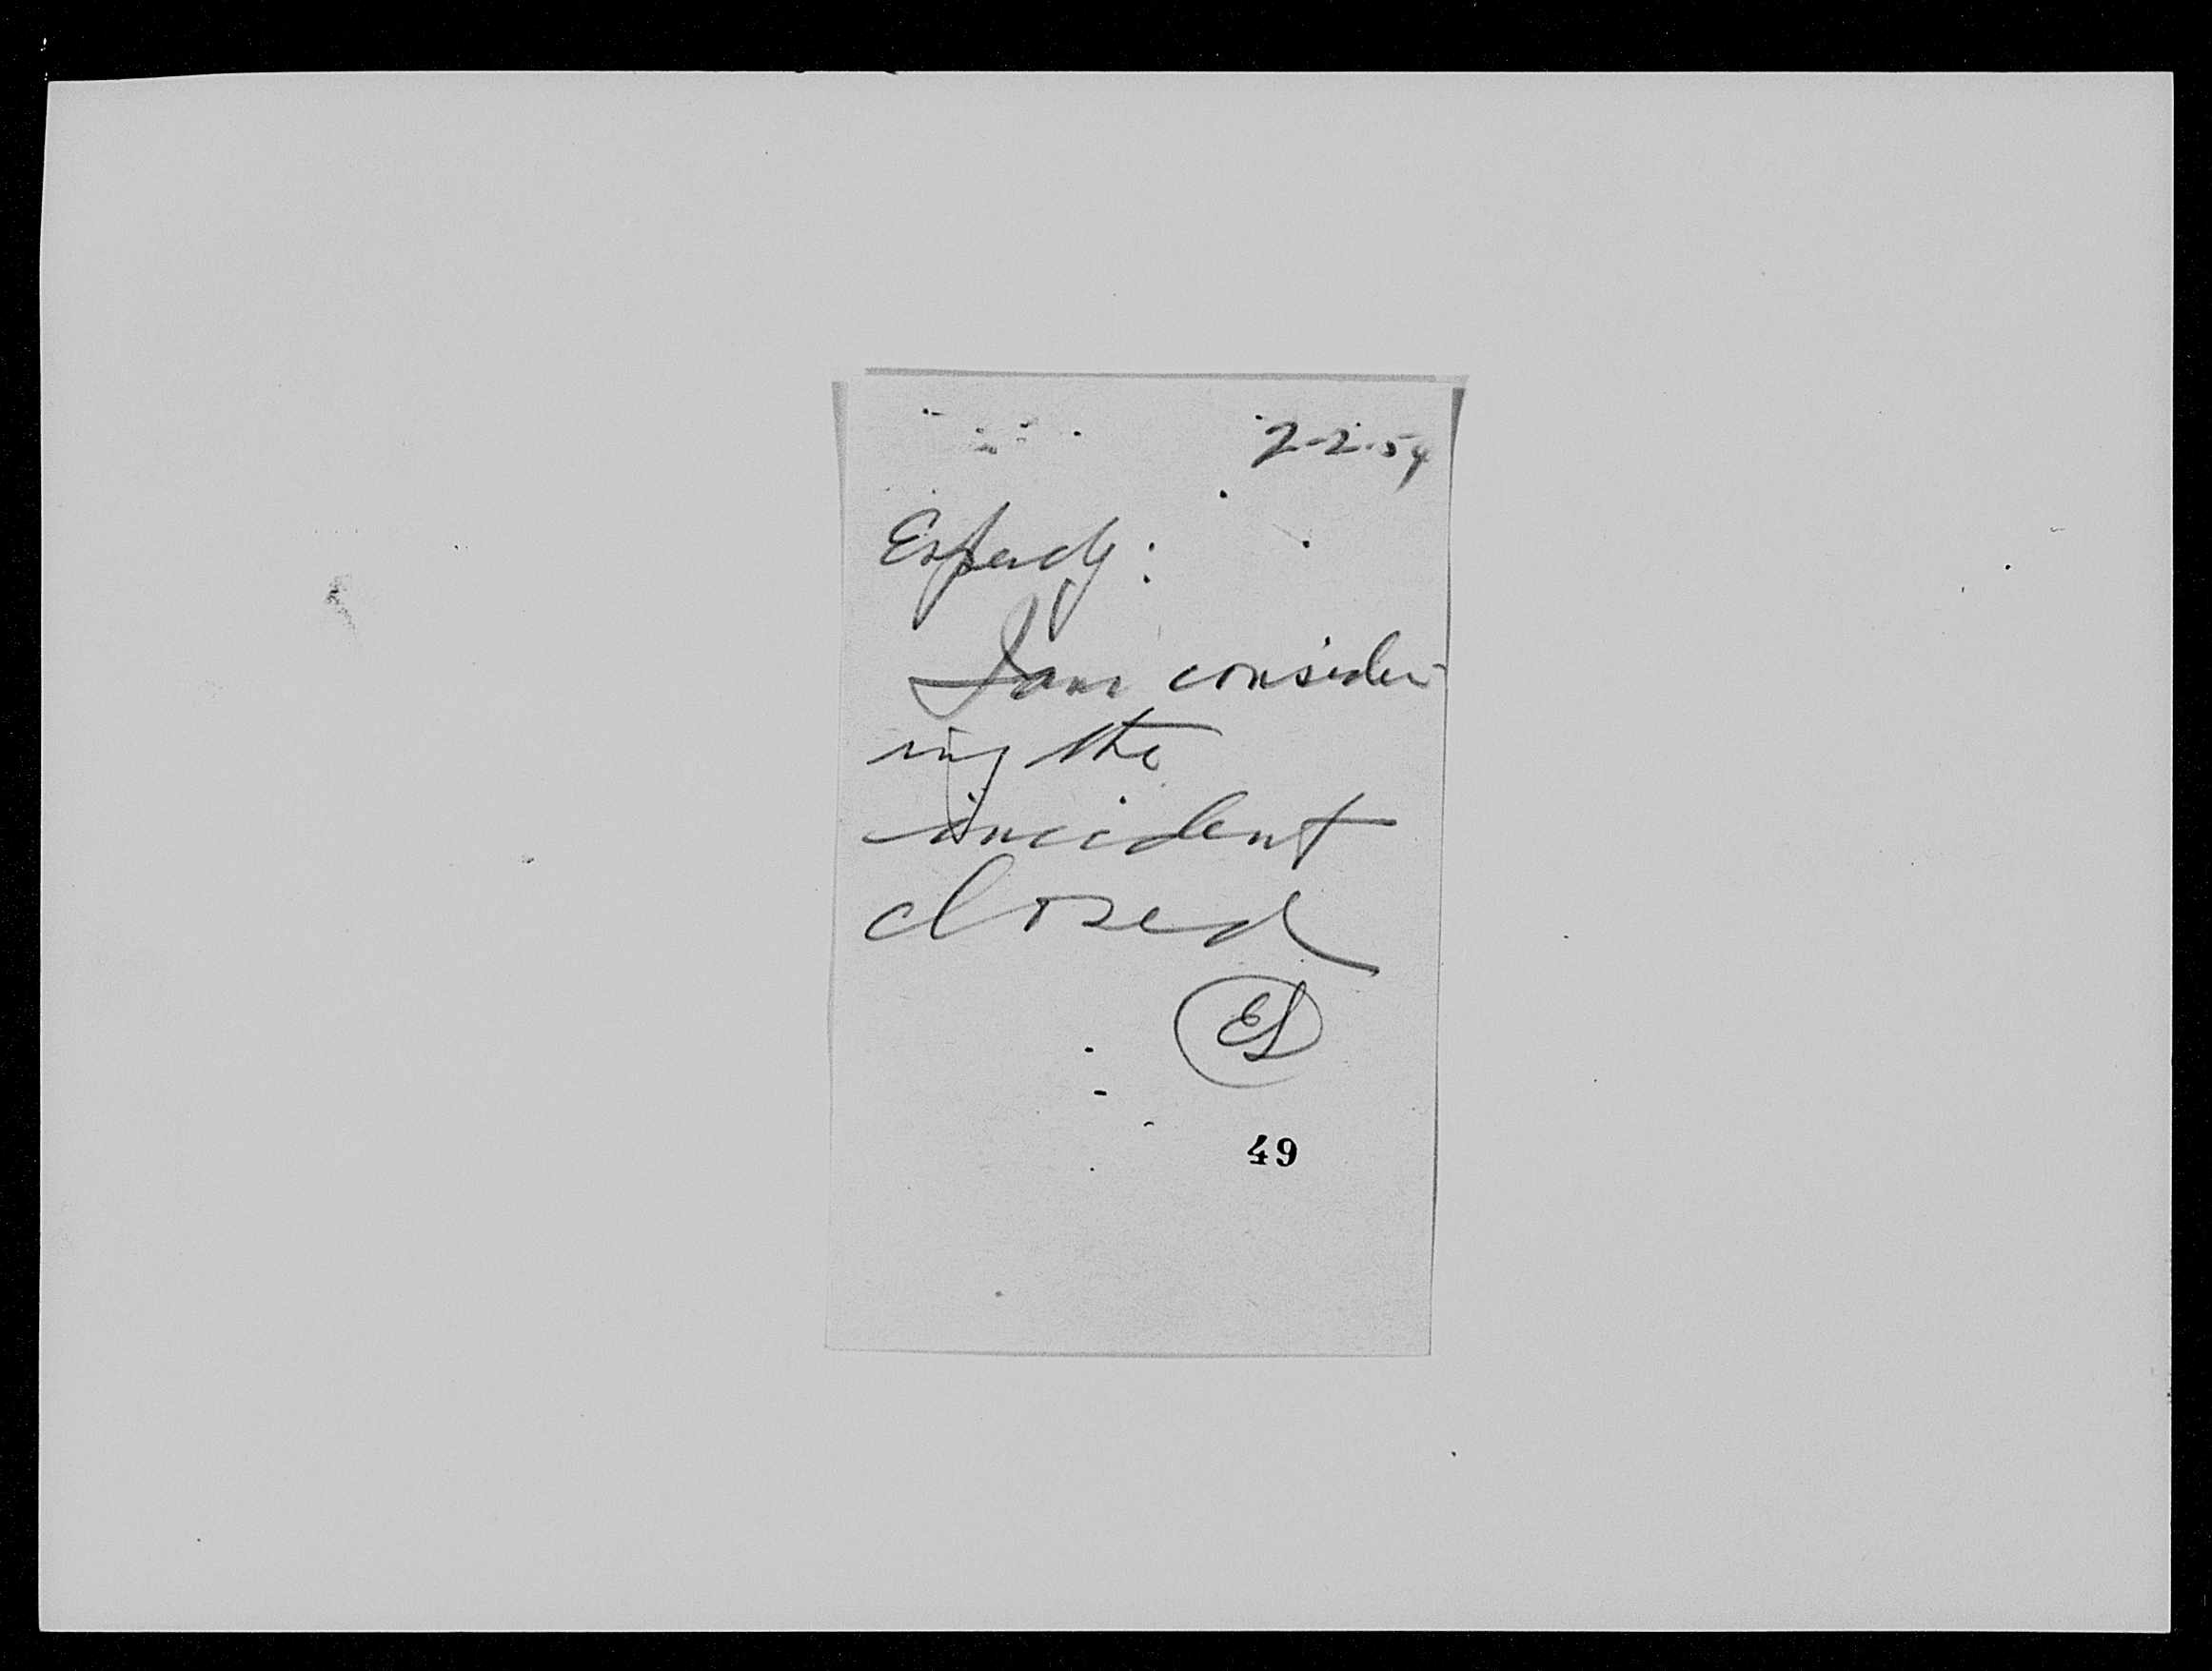 2-2-54
Espady:
I am consider-
ing the
incident
closed
ES
49